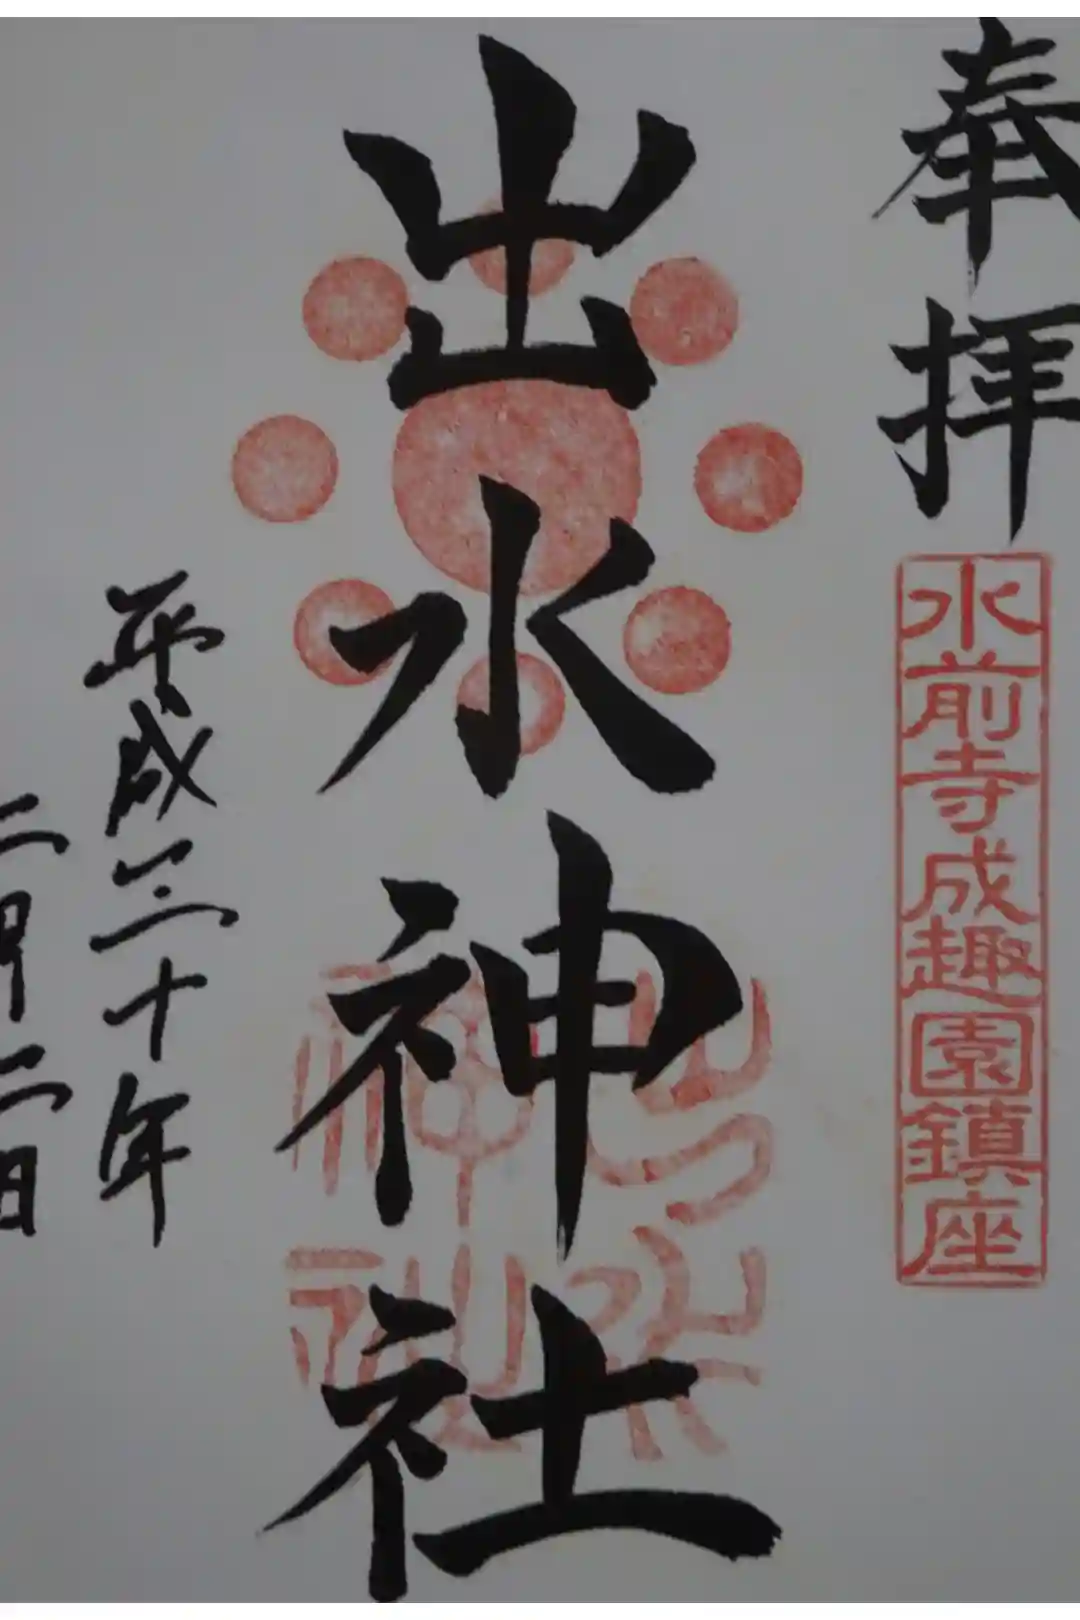 奉拝
水前寺成趣園鎮座
出水神社
平成三十年
二月二日